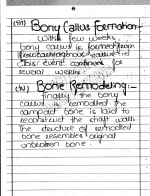 (iii) Bony Callus formation:-
with few weeks,
bony callus is formed from
fibrocartilaginous callus.
this event continues for
several weeks.
(iv) Bone Remodeling:-
finally the bony
callus is remodelled the
compact bone is laid to
reconstruct the shaft walls
The structure of remodelled
bone resembles original
unbroken bone.